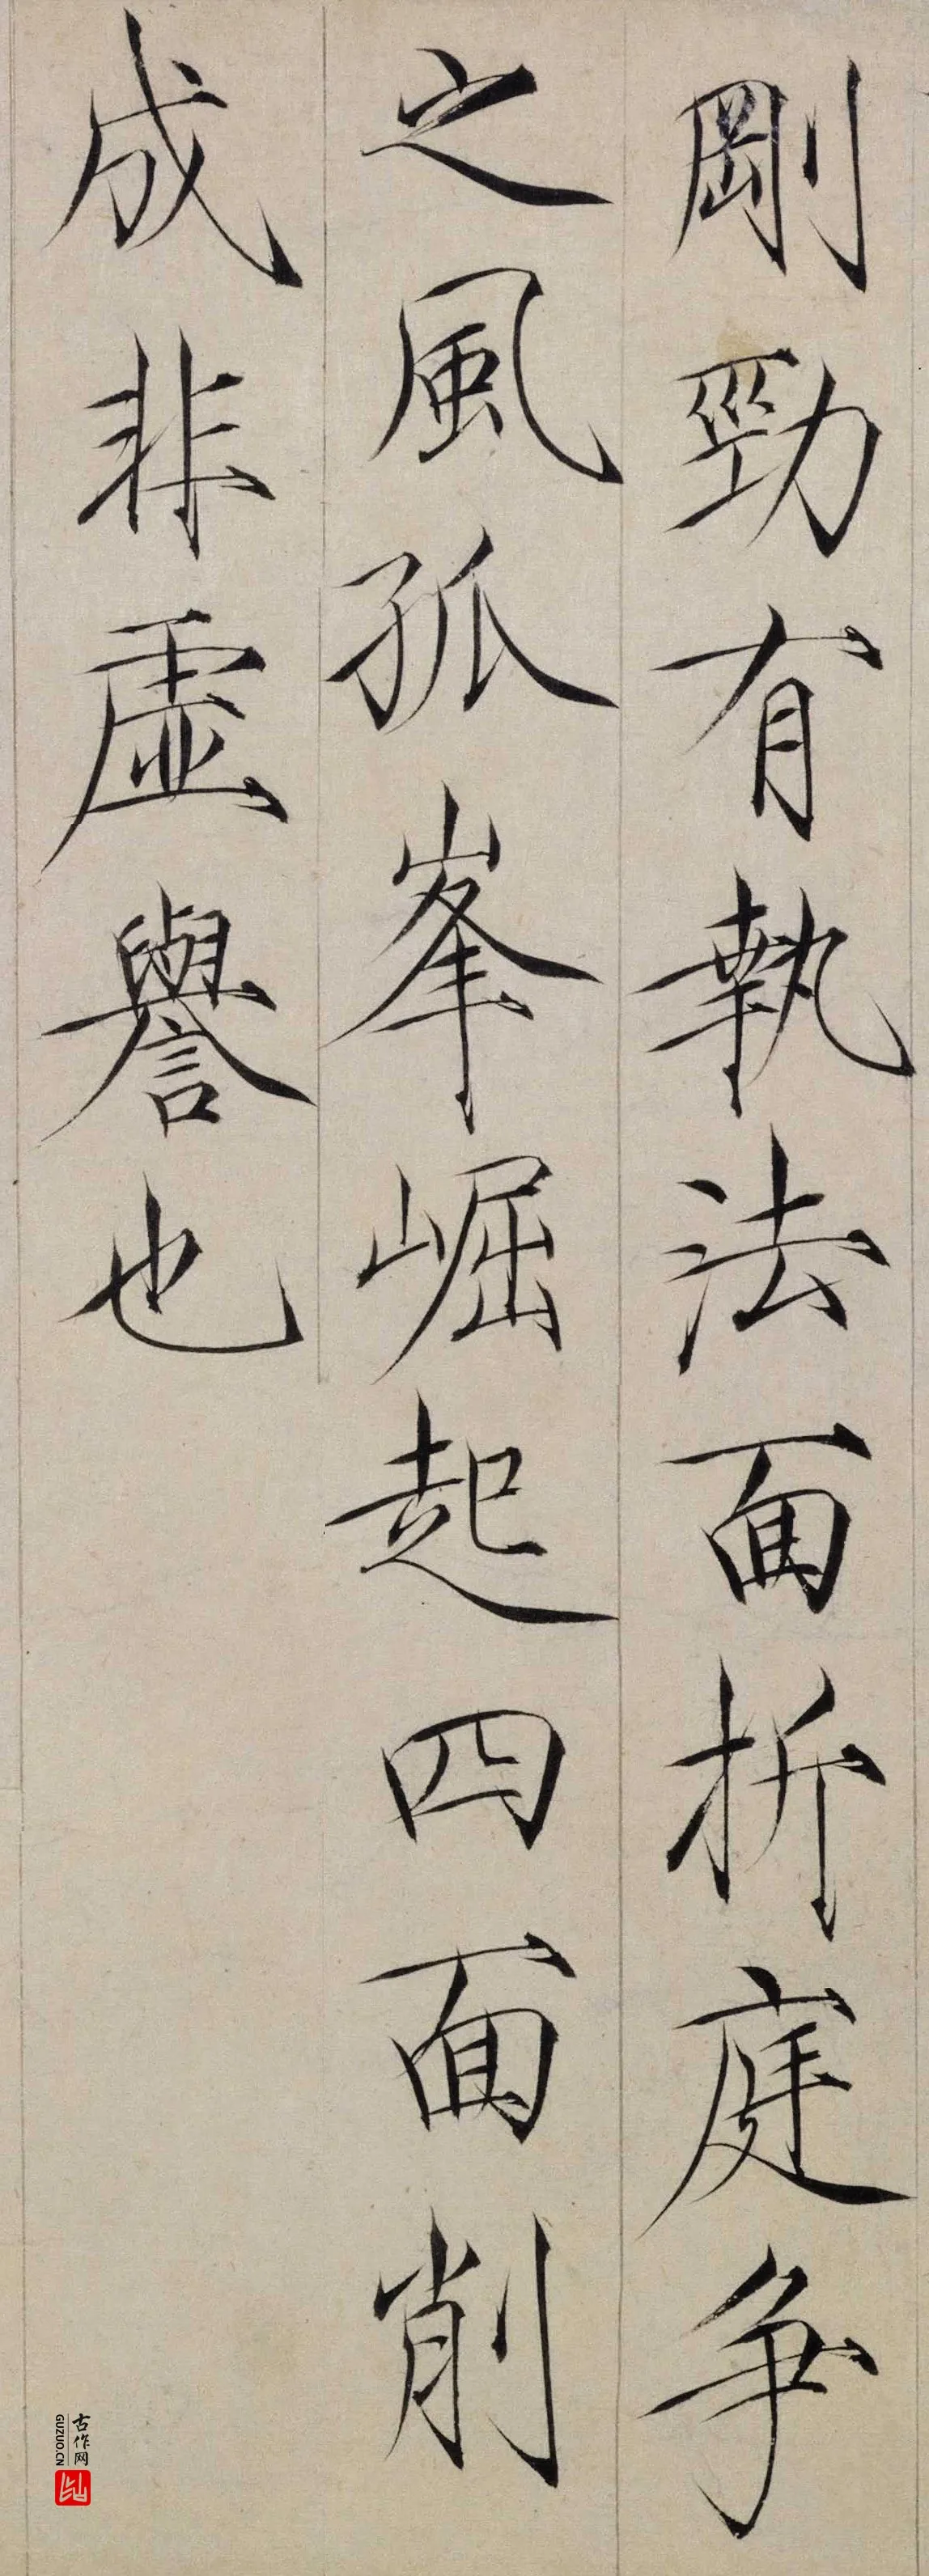 剛勁有執法面折庭争
之風孤峯崛起四面削
成非虛譽也
古作网
GUZUO.CN